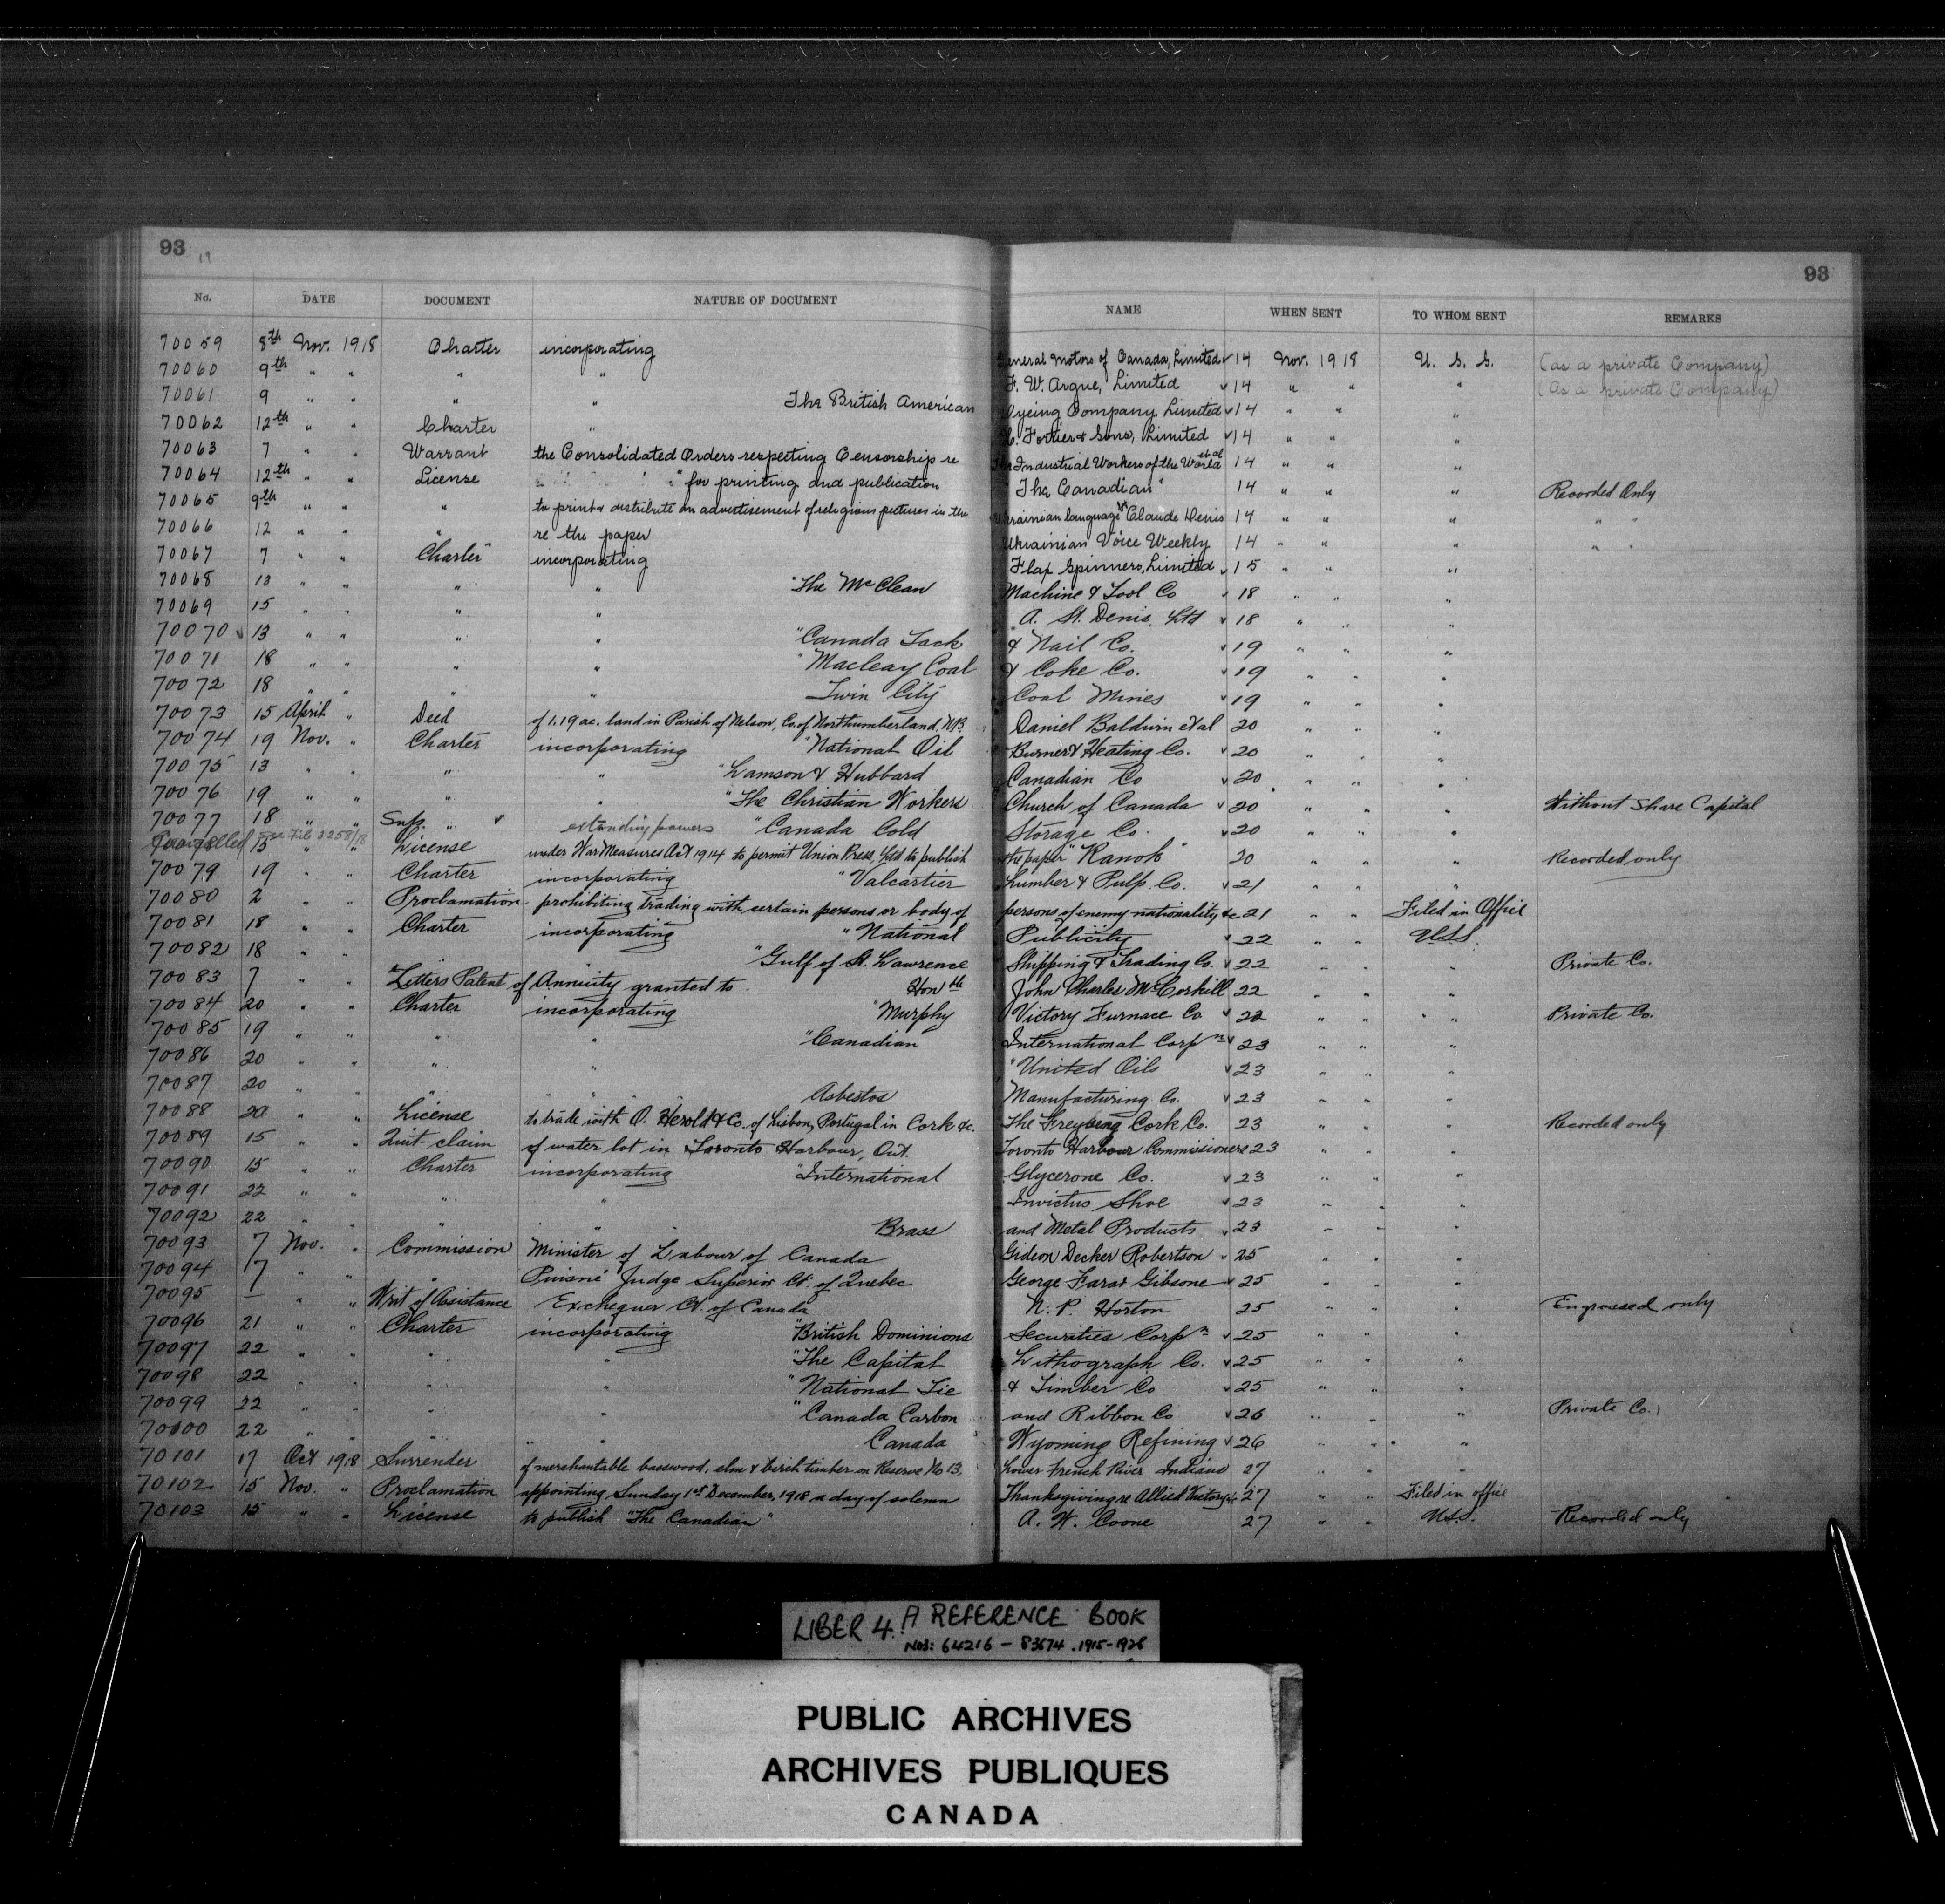 93 93
No. DATE DOCUMENT NATURE OF DOCUMENT NAME WHEN SENT TO WHOM SENT REMARKS
70059 8th Nov. 1918 Charter incorporating General Motors of Canada, Limited √ 14 Nov. 1918 U. S. S. (as a private Company)
70060 9th " " " " F. W. Argue, Limited √ 14 " " " (As a private Company)
70061 9 " " " " The British American Dyeing Company Limited √ 14 " " "
70062 12th " " Charter " H. Fortier & Sons, Limited √ 14 " " "
70063 7 " " Warrant the Consolidated Orders respecting Censorship re The Industrial Workers of the World et al 14 " " "
70064 12th " " License " for printing and publication "The Canadian" 14 " " " Recorded Only
70065 9th " " " to print & distribute an advertisement of religious pictures in the Ukrainian language Claude Denis 14 " " " " "
70066 12 " " " re the paper Ukrainian Voice Weekly 14 " " " " "
70067 7 " " Charter incorporating Flax Spinners, Limited √ 15 " " "
70068 13 " " " " "The McClean Machine & Tool Co √ 18 " " "
70069 15 " " " " A. St. Denis, Ltd √ 18 " " "
70070 √ 13 " " " " "Canada Tack & Nail Co. √ 19 " " "
70071 18 " " " " "Macleay Coal & Coke Co. √ 19 " " "
70072 18 " " " " Twin City Coal Mines √ 19 " " "
70073 15 April " Deed of 1.19 ac. land in Parish of Nelson, Co. of Northumberland, N.B. Daniel Baldwin et al 20 " " "
70074 19 Nov. " Charter incorporating "National Oil Burner & Heating Co. √ 20 " " "
70075 13 " " " " "Lamson & Hubbard Canadian Co √ 20 " " "
70076 19 " " " " "The Christian Workers Church of Canada √ 20 " " " Without Share Capital
70077 18 " " Supp. " √ extending powers "Canada Cold Storage Co. √ 20 " " "
Cancelled see File 3258/18 15 " " License under War Measures Act 1914 to permit Union Press, Ltd to publish the paper "Kanok" 20 " " " Recorded only
70079 19 " " Charter incorporating "Valcartier Lumber & Pulp. Co. √ 21 " " "
70080 2 " " Proclamation prohibiting trading with certain persons or body of persons of enemy nationality &c 21 " " Filed in Office
70081 18 " " Charter incorporating "National Publicity √ 22 " " U.S.S.
70082 18 " " " " "Gulf of St. Lawrence Shipping & Trading Co. √ 22 " " " Private Co.
70083 7 " " Letters Patent of Annuity granted to Honble John Charles McCorkill 22 " " "
70084 20 " " Charter incorporating "Murphy Victory Furnace Co √ 22 " " " Private Co.
70085 19 " " " " "Canadian International Corpn √ 23 " " "
70086 20 " " " " "United Oils √ 23 " " "
70087 20 " " " " Asbestos Manufacturing Co. √ 23 " " "
70088 20 " " License to trade with O. Herold & Co. of Lisbon, Portugal in Cork &c. The Freyseng Cork Co. 23 " " " Recorded only
70089 15 " " Quit-claim of water lot in Toronto Harbour, Ont. Toronto Harbour Commissioners 23 " " "
70090 15 " " Charter incorporating "International Glycerone Co. √ 23 " " "
70091 22 " " " " Invictus Shoe √ 23 " " "
70092 22 " " " " Brass and Metal Products √ 23 " " "
70093 7 Nov. " Commission Minister of Labour of Canada Gideon Decker Robertson √ 25 " " "
70094 7 " " " Puisné Judge Superior Ct. of Quebec George Farar Gibsone √ 25 " " "
70095 — " " Writ of Assistance Exchequer Ct. of Canada N. P. Horton 25 " " " Engrossed only
70096 21 " " Charter incorporating "British Dominions Securities Corpn √ 25 " " "
70097 22 " " " " "The Capital Lithograph Co. √ 25 " " "
70098 22 " " " " "National Tie & Timber Co √ 25 " " "
70099 22 " " " " "Canada Carbon and Ribbon Co √ 26 " " " Private Co.
70100 22 " " " " Canada Wyoming Refining √ 26 " " "
70101 17 Oct 1918 Surrender of merchantable basswood, elm & birch timber on Reserve No 13, Lower French River Indians 27 " " "
70102 15 Nov. " Proclamation appointing Sunday 1st December, 1918 a day of solemn Thanksgiving re Allied Victory &c 27 " " Filed in office
70103 15 " " License to publish "The Canadian" A. W. Coone 27 " " U.S.S. Recorded only
LIBER 4. A REFERENCE BOOK
NOS: 64216 - 83674. 1915-1926
PUBLIC ARCHIVES
ARCHIVES PUBLIQUES
CANADA